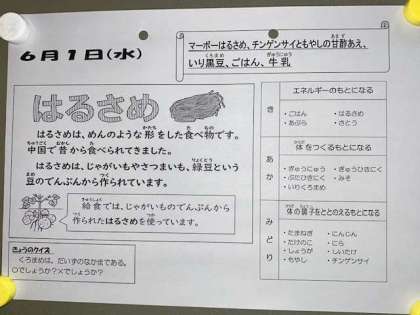 6月1日(水)
マーボーはるさめ、チンゲンサイともやしの甘酢あえ、
いり黒豆、ごはん、牛乳
はるさめ
はるさめは、めんのような形をした食べ物です。
中国で昔から食べられてきました。
はるさめは、じゃがいもやさつまいも、緑豆という
豆のでんぷんから作られています。
給食では、じゃがいものでんぷんから
作られたはるさめを使っています。
きょうのクイズ
くろまめは、だいずのなかまである。
○でしょうか?×でしょうか?
き
エネルギーのもとになる
・ごはん ・はるさめ
・あぶら ・さとう
あか
体をつくるもとになる
・ぎゅうにゅう ・ぎゅうひきにく
・ぶたひきにく ・みそ
・いりくろまめ
みどり
体の調子をととのえるもとになる
・たまねぎ ・にんじん
・たけのこ ・にら
・しょうが ・しいたけ
・もやし ・チンゲンサイ